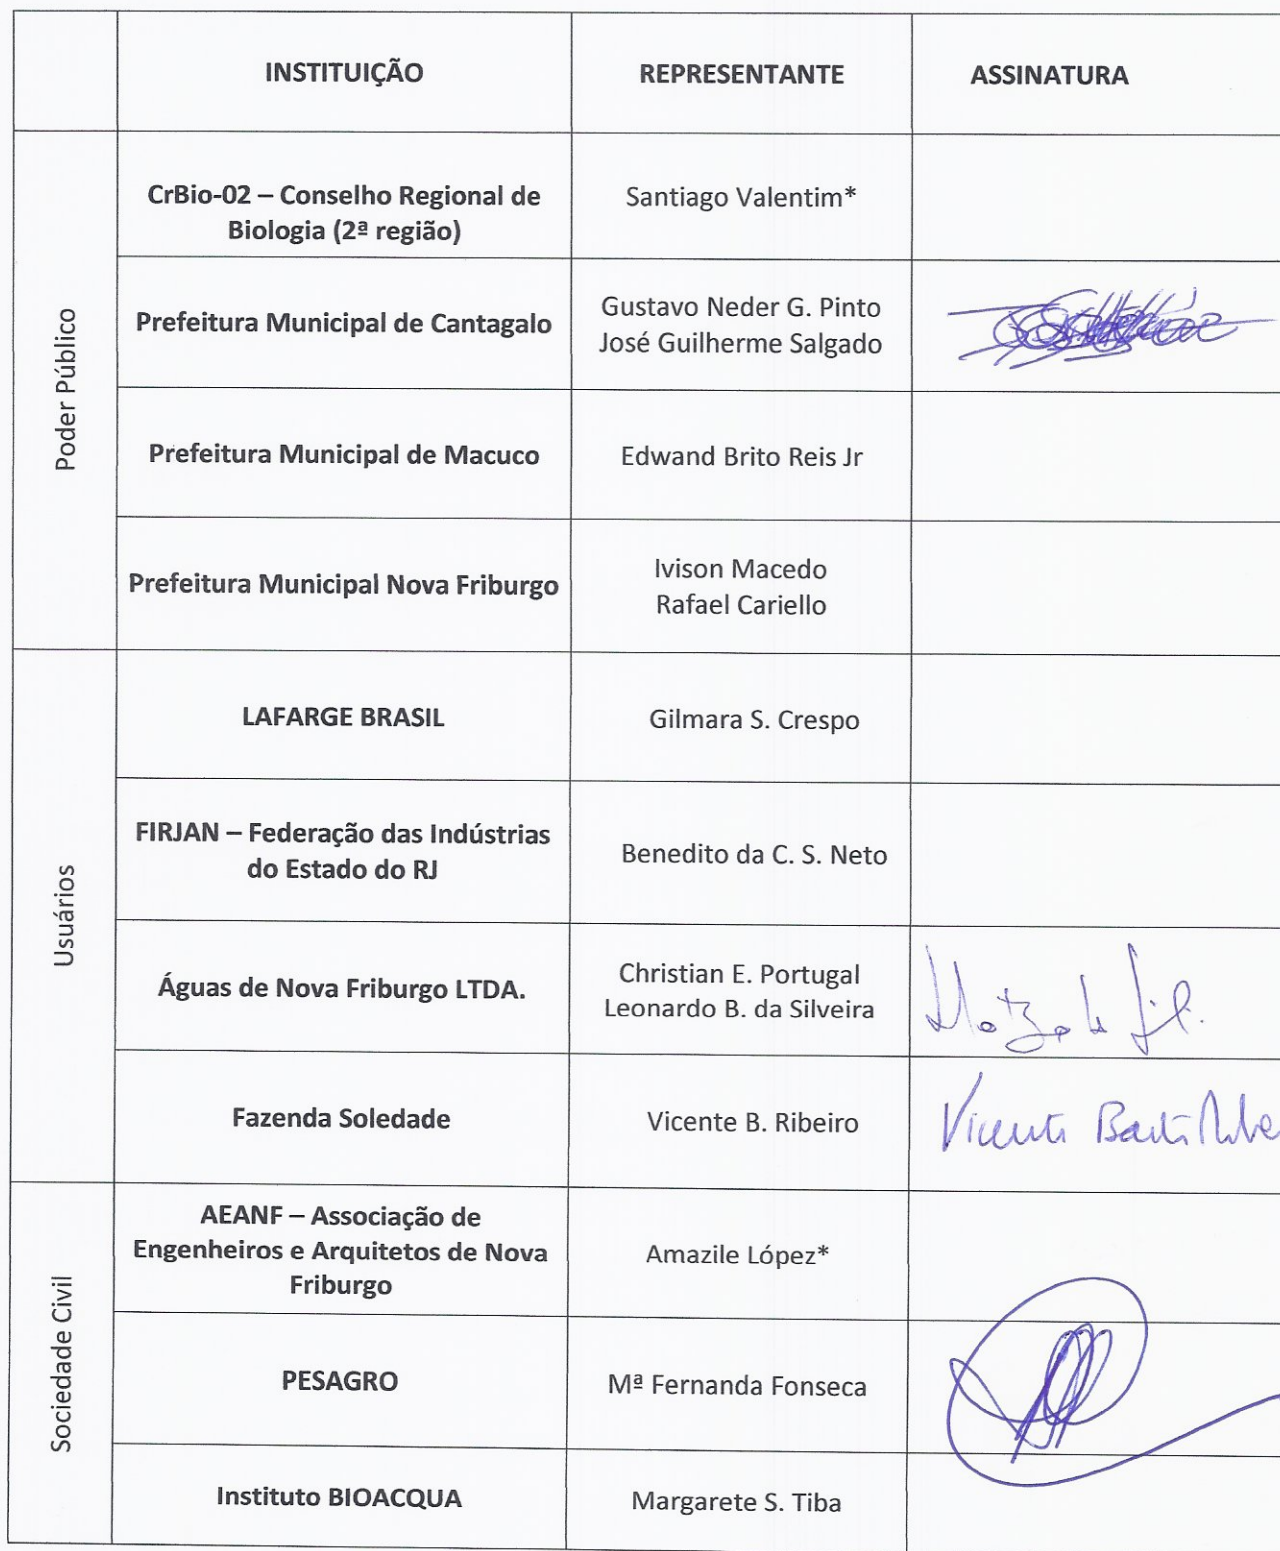 INSTITUIÇÃO REPRESENTANTE ASSINATURA
Poder Público
CrBio-02 – Conselho Regional de
Biologia (2ª região)
Santiago Valentim*
Prefeitura Municipal de Cantagalo
Gustavo Neder G. Pinto
José Guilherme Salgado
Prefeitura Municipal de Macuco
Edwand Brito Reis Jr
Prefeitura Municipal Nova Friburgo
Ivison Macedo
Rafael Cariello
Usuários
LAFARGE BRASIL
Gilmara S. Crespo
FIRJAN – Federação das Indústrias
do Estado do RJ
Benedito da C. S. Neto
Águas de Nova Friburgo LTDA.
Christian E. Portugal
Leonardo B. da Silveira
Fazenda Soledade
Vicente B. Ribeiro
Vicente
Sociedade Civil
AEANF – Associação de
Engenheiros e Arquitetos de Nova
Friburgo
Amazile López*
PESAGRO
Mª Fernanda Fonseca
Instituto BIOACQUA
Margarete S. Tiba